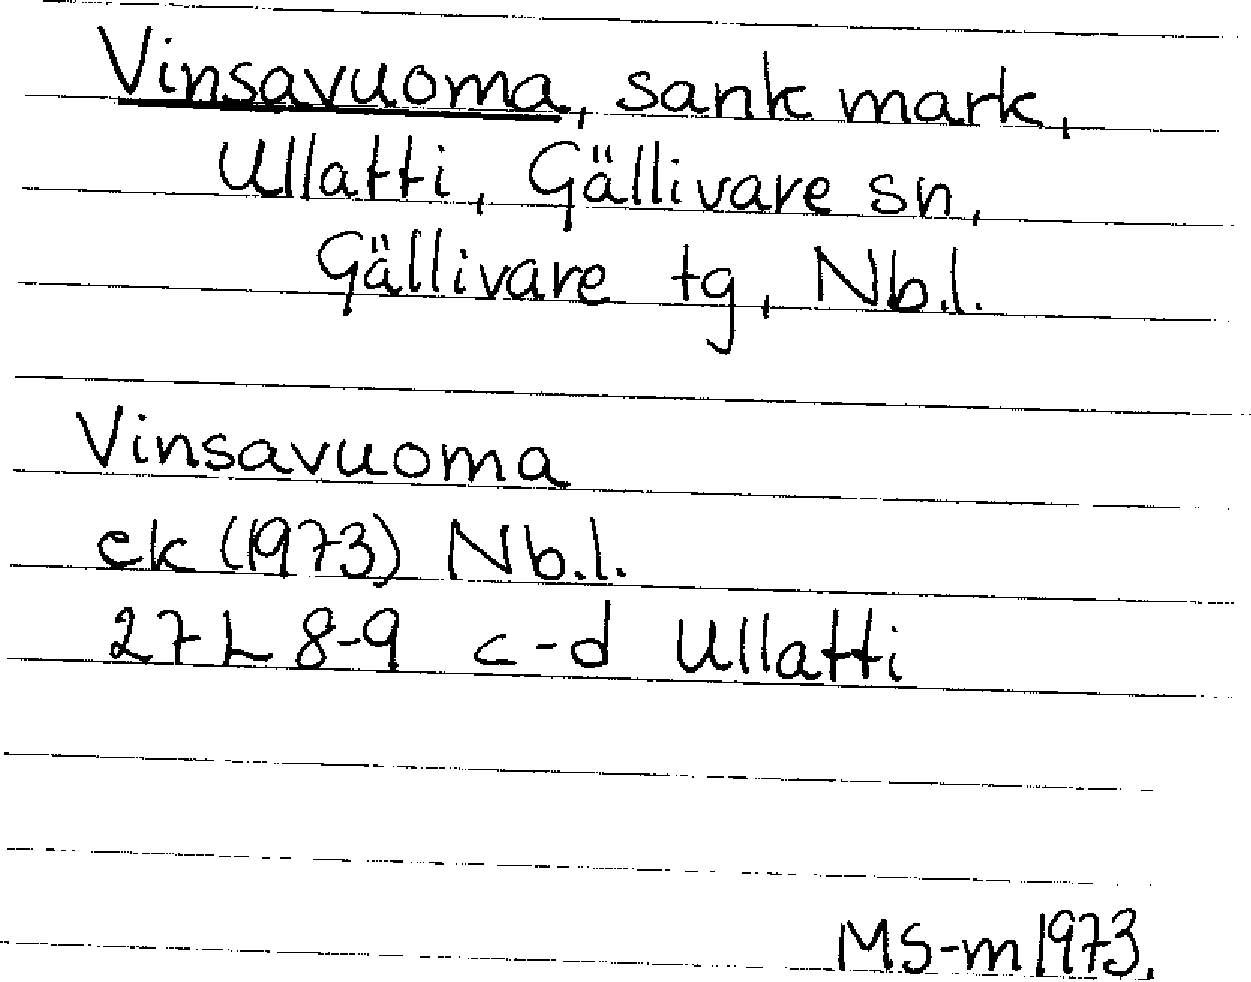 Vinsavuoma, sank mark,
Ullatti, Gällivare sn,
Gällivare tg, Nb.l.
Vinsavuoma
ek (1973) Nb.l.
27 L 8-9 c-d Ullatti
MS-m 1973.